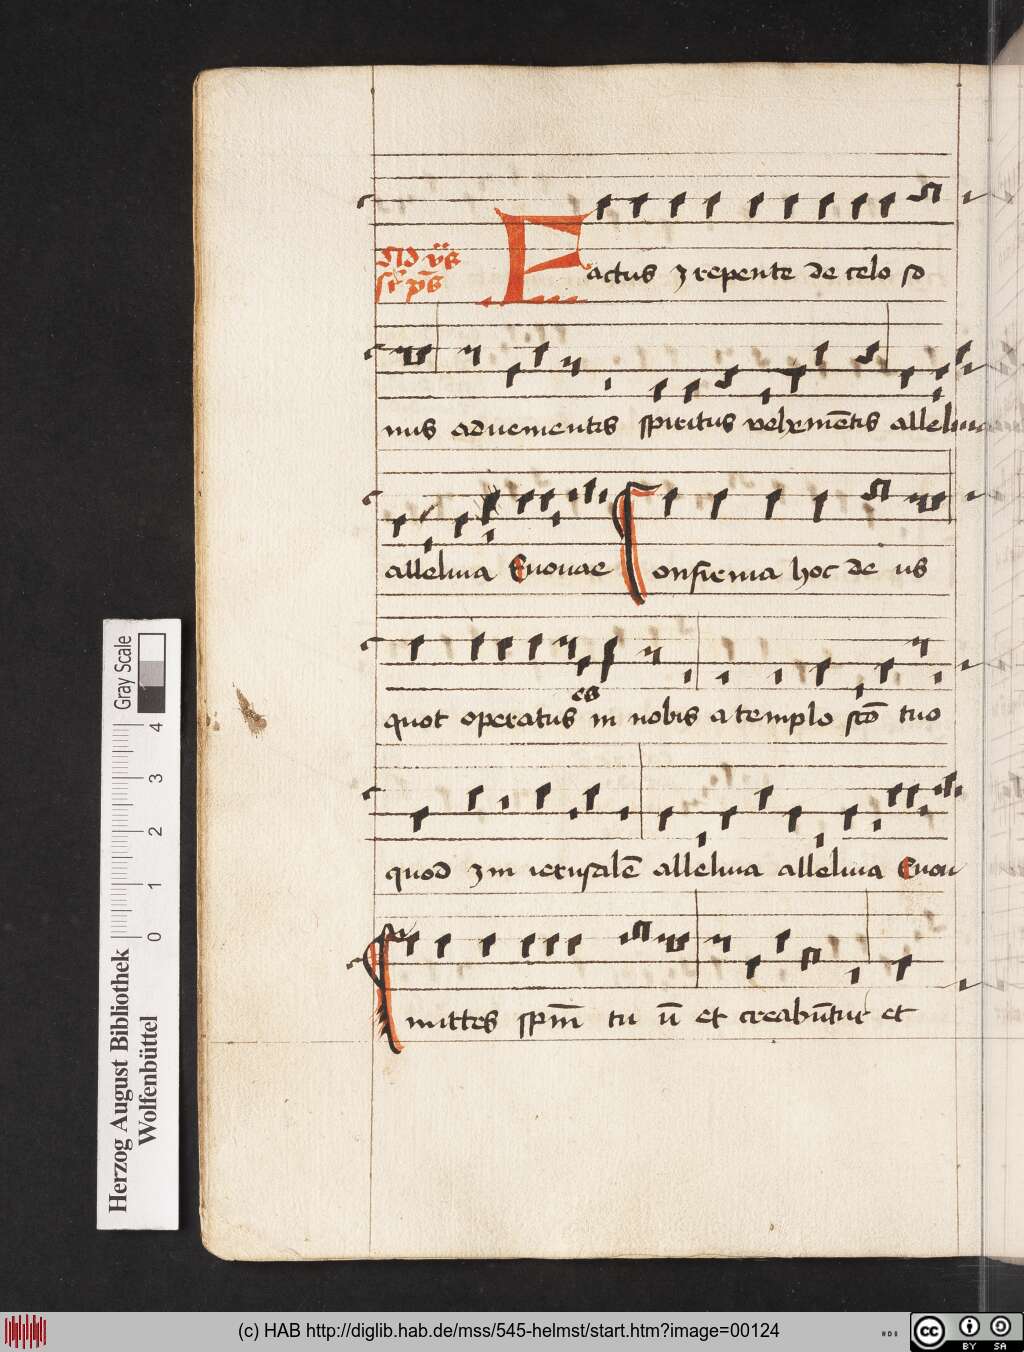 Ad vs̄
Factus ÷ repente de celo so
nus aduenientis spiritus vehemētis alleluia
alleluia Euouae Confirma hoc de us
es
quot operatus in nobis a templo sctō tuo
quod ÷ in ierusalē alleluia alleluia Euou
Emittes spm̄ tu ū et creabūtur et
Gray Scale
4
3
2
1
0
Herzog August Bibliothek
Wolfenbüttel
(c) HAB http://diglib.hab.de/mss/545-helmst/start.htm?image=00124
cc BY SA